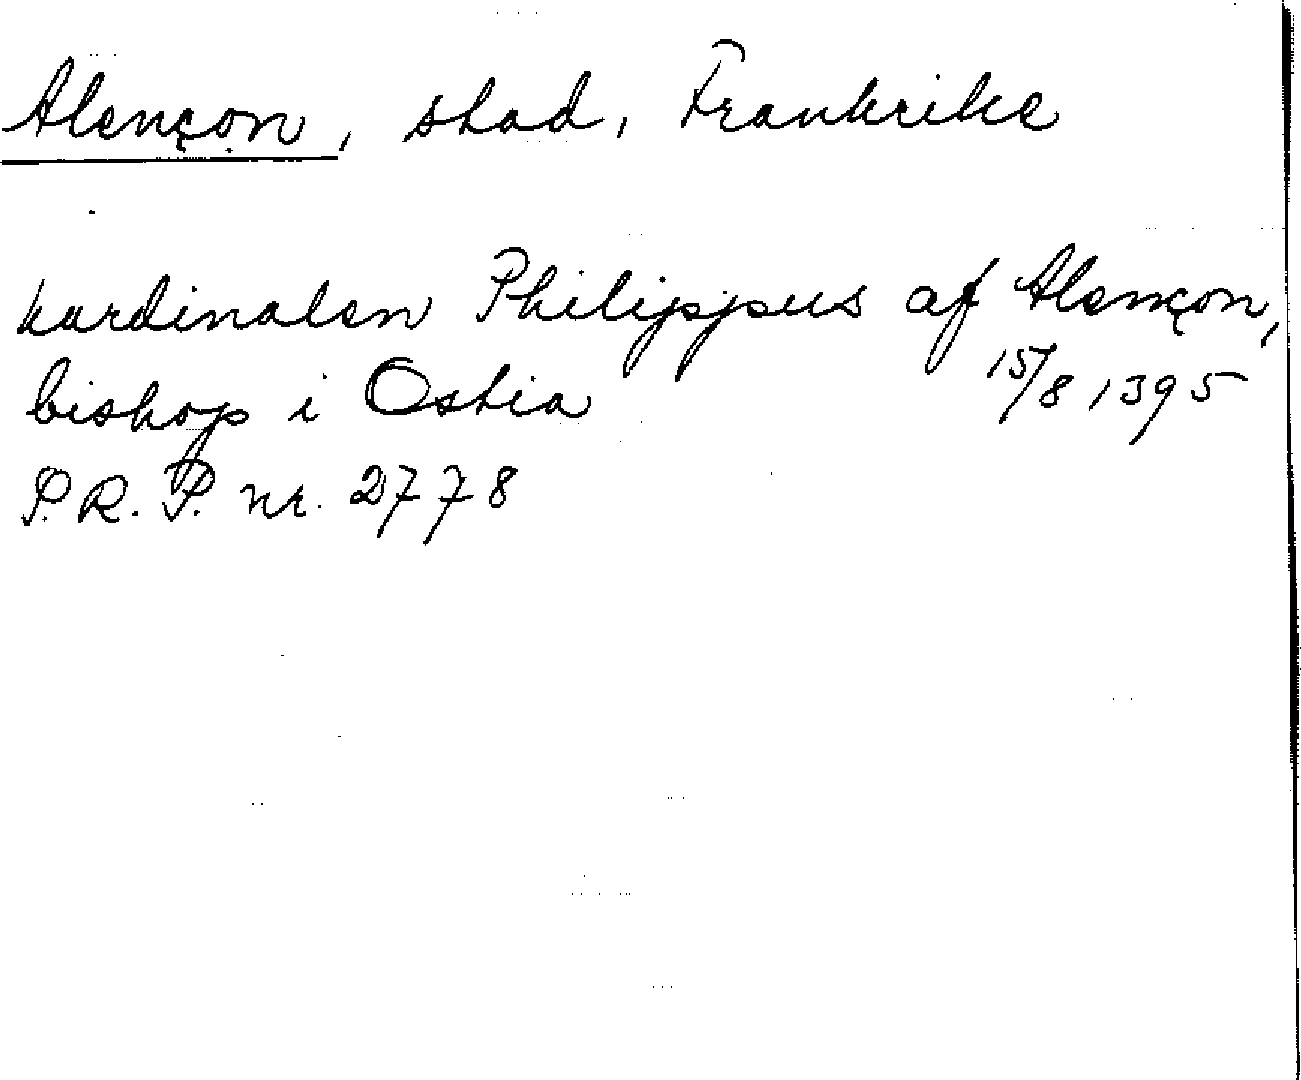 Alençon, stad, Frankrike
kardinalen Philippus af Alençon,
biskop i Ostia 15/8 1395
P.R.P. nr. 2778